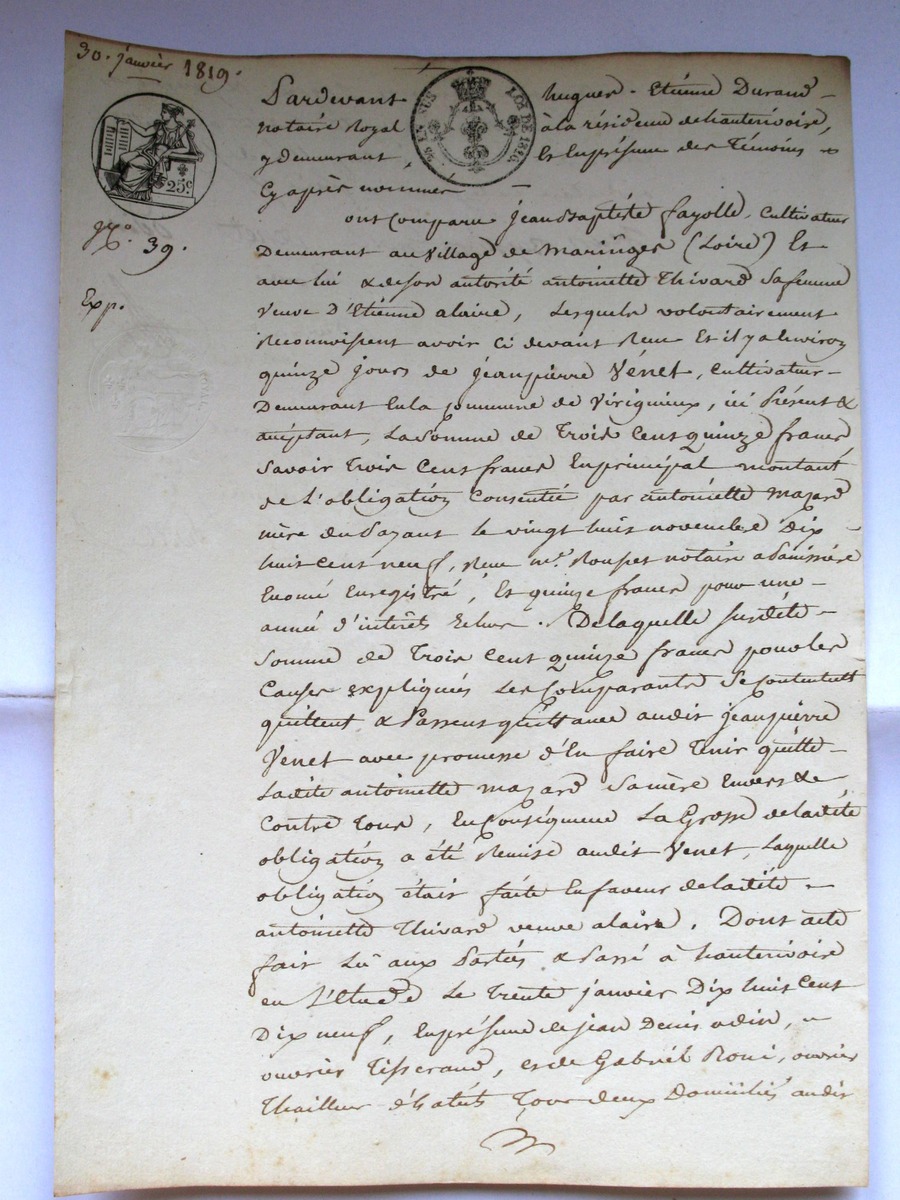 30. janvier 1819.
Pardevant hugues - Etienne Durand -
notaire Royal à la résidence de hauterivoire,
y demeurant, Et En présence des Témoins
Cy après nommés -
LOI DE 1816.
25c
No. 39.
Exp.
ont comparu jean Baptiste fayolle, cultivateur
Demeurant au village de Maringes (Loire) Et
avec lui & de son autorité antoinette Thivard sa femme
veuve D'Etienne alaire, Lesquels volontairement
Reconnoissent avoir ci devant Recu Et il y a Environ
quinze jours de jeanpierre Vénet, cultivateur -
Demeurant En la commune de Virigneux, ici Présent &
acceptant, La Somme de Trois Cent quinze francs
Savoir Trois Cent francs En principal montant
de L'obligation Consentie par antoinette mazard
mère du Payant le vingt huit novembre Dix
huit cent neuf, Recu me. notaire
Enregistré, Et quinze francs pour une -
année d'intérêts Echus. De laquelle susdite -
Somme de Trois Cent quinze francs pour les
Causes expliquées Les Comparants Se contentent
quittent & Passent quittance audit jeanpierre
Venet avec promesse d'En faire Tenir quitte -
Ladite antoinette mazard Sa mère Envers &
Contre Tous, En Conséquence La Grosse de ladite
obligation a été Remise audit Venet, Laquelle
obligation était faite En faveur de ladite -
antoinette Thivard veuve alaire. Dont acte
fait Lû aux Parties & Passé à hauterivoire
en L'Etude Le Trente janvier Dix huit Cent
Dix neuf, En présence de jean Denis odin, -
ouvrier Tisserand, et de Gabriel Roni, ouvrier
Thailleur d'habits Tous deux Domiciliés audit